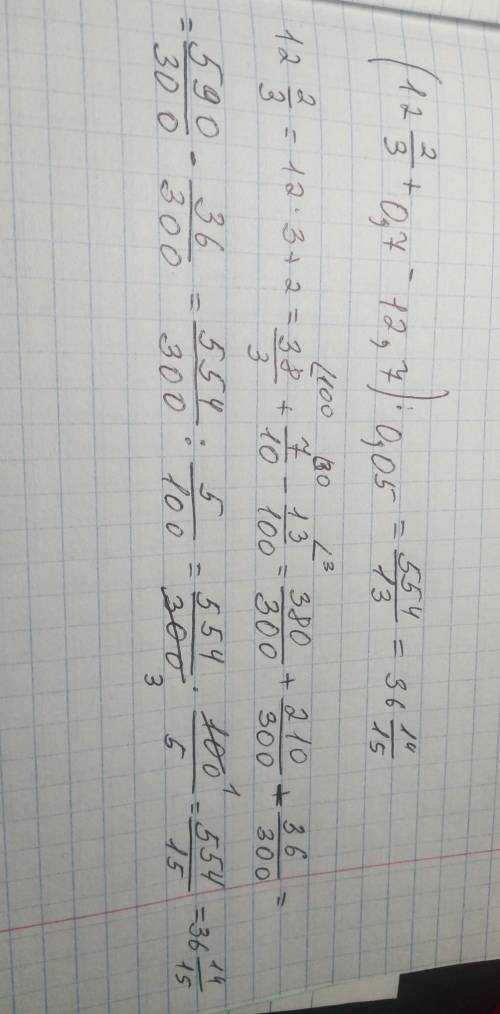 (12 2/3 + 0,7 - 12,7) : 0,05 = 554/13 = 36 14/15
12 2/3 = 12 · 3 + 2 = 38/3 + 7/10 - 13/100 = 380/300 + 210/300 - 36/300 =
= 590/300 - 36/300 = 554/300 : 5/100 = 554/300 3 · 100 1/5 = 554/15 = 36 14/15